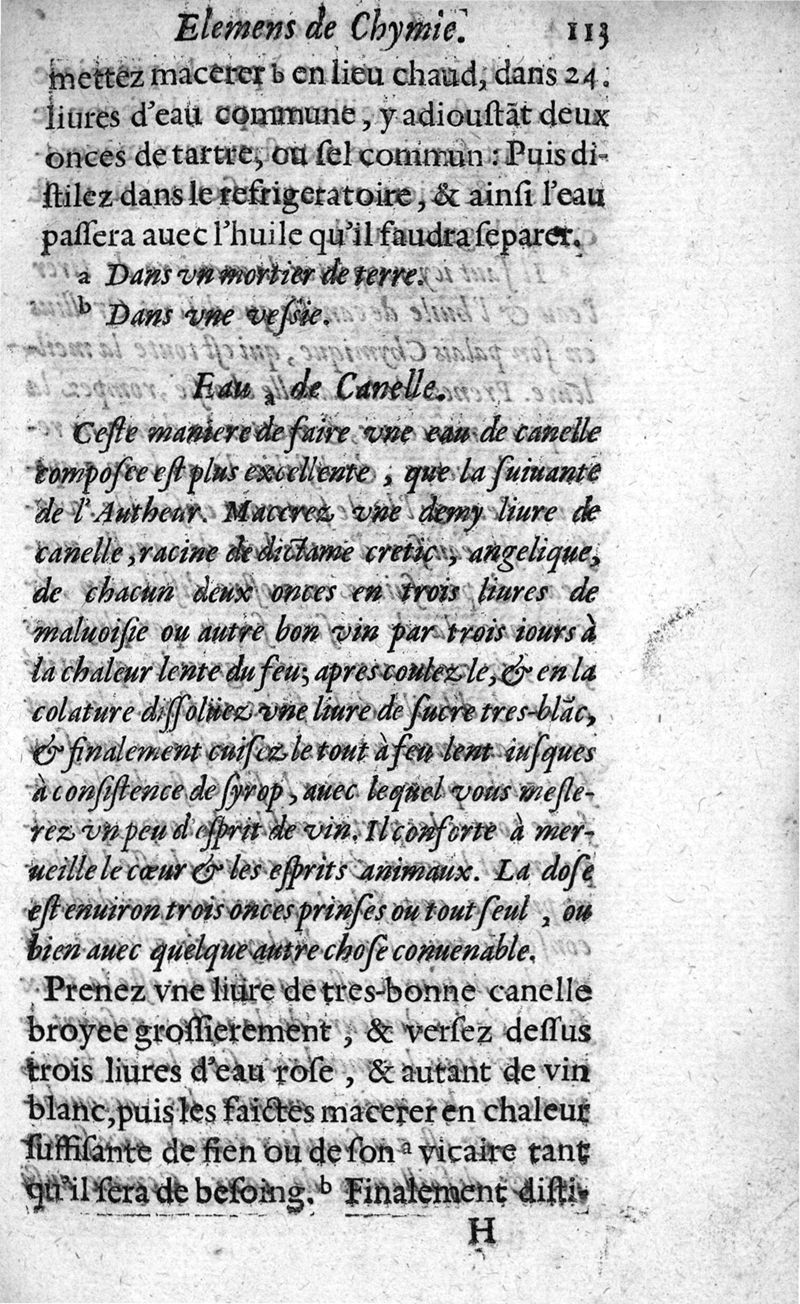 Elemens de Chymie. 113
mettez macerer b en lieu chaud, dans 24.
liures d'eau commune, y adiouſtãt deux
onces de tartre, ou ſel commun : Puis di-
ſtilez dans le refrigeratoire, & ainſi l'eau
paſſera auec l'huile qu'il faudra ſeparer.
a Dans vn mortier de terre.
b Dans vne veſsie.
Eau a de Canelle.
Ceſte maniere de faire vne eau de canelle
compoſee eſt plus excellente, que la ſuiuante
de l'Autheur. Macerez vne demy liure de
canelle, racine de dictame cretic, angelique,
de chacun deux onces en trois liures de
maluoiſie ou autre bon vin par trois iours à
la chaleur lente du feu; apres coulez le, & en la
colature diſſoluez vne liure de ſucre tres-blãc,
& finalement cuiſez le tout à feu lent iuſques
à conſiſtence de ſyrop, auec lequel vous meſle-
rez vn peu d'eſprit de vin. Il conforte à mer-
ueille le cœur & les eſprits animaux. La doſe
eſt enuiron trois onces prinſes ou tout ſeul, ou
bien auec quelque autre choſe conuenable.
Prenez vne liure de tres-bonne canelle
broyee groſſierement, & verſez deſſus
trois liures d'eau roſe, & autant de vin
blanc, puis les faictes macerer en chaleur
ſuffiſante de fien ou de ſon a vicaire tant
qu'il ſera de beſoing. b Finalement diſti-
H